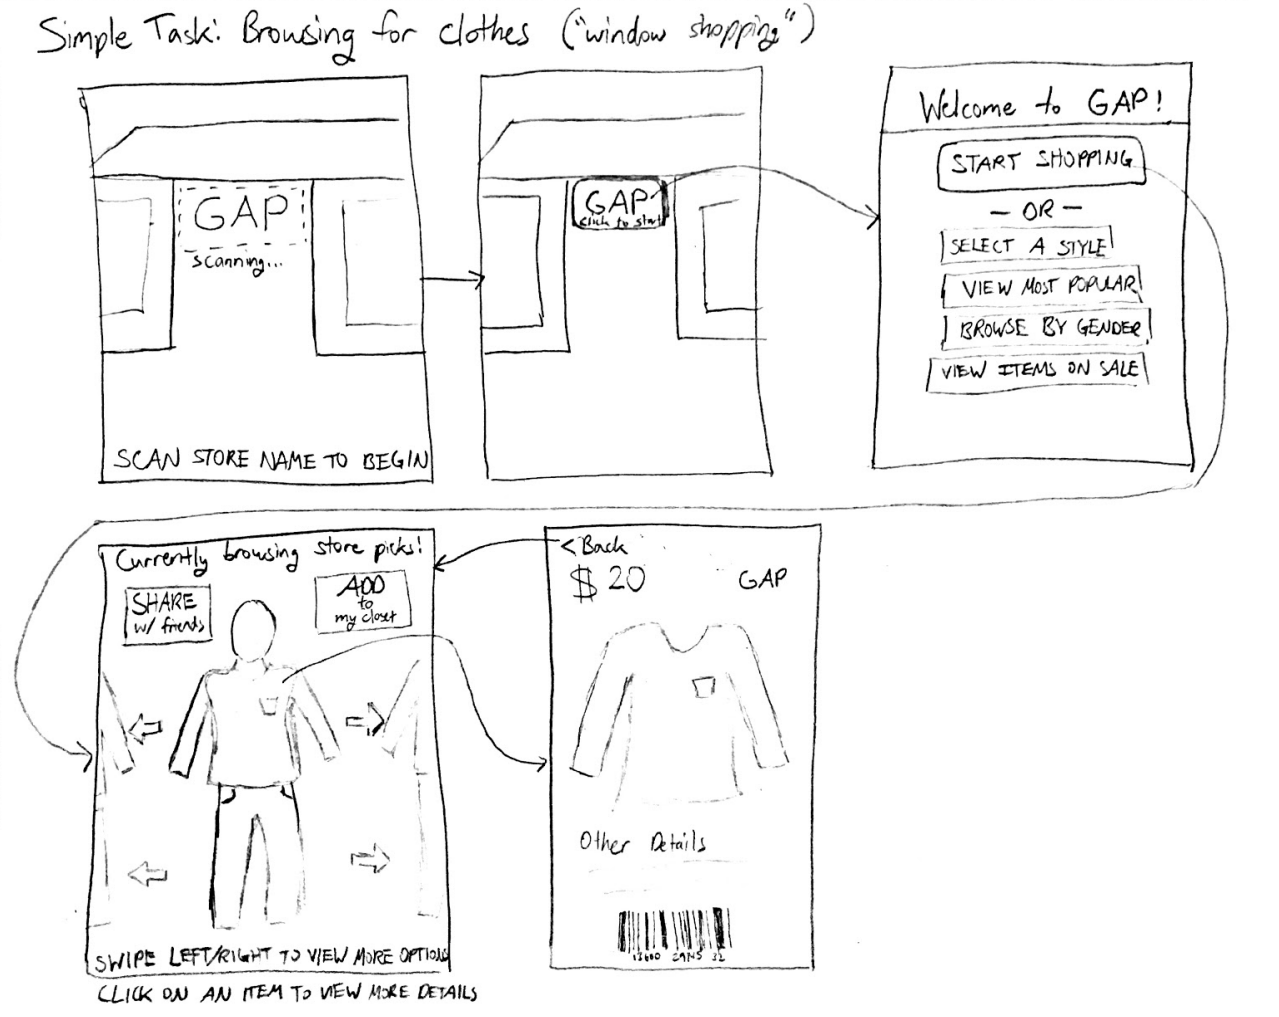 Simple Task: Browsing for clothes ("window shopping")
GAP
scanning...
SCAN STORE NAME TO BEGIN
GAP
click to start
Welcome to GAP!
START SHOPPING
— OR —
SELECT A STYLE
VIEW MOST POPULAR
BROWSE BY GENDER
VIEW ITEMS ON SALE
Currently browsing store picks!
SHARE
w/ friends
ADD
to
my closet
SWIPE LEFT/RIGHT TO VIEW MORE OPTIONS
CLICK ON AN ITEM TO VIEW MORE DETAILS
< Back
$ 20
GAP
Other Details